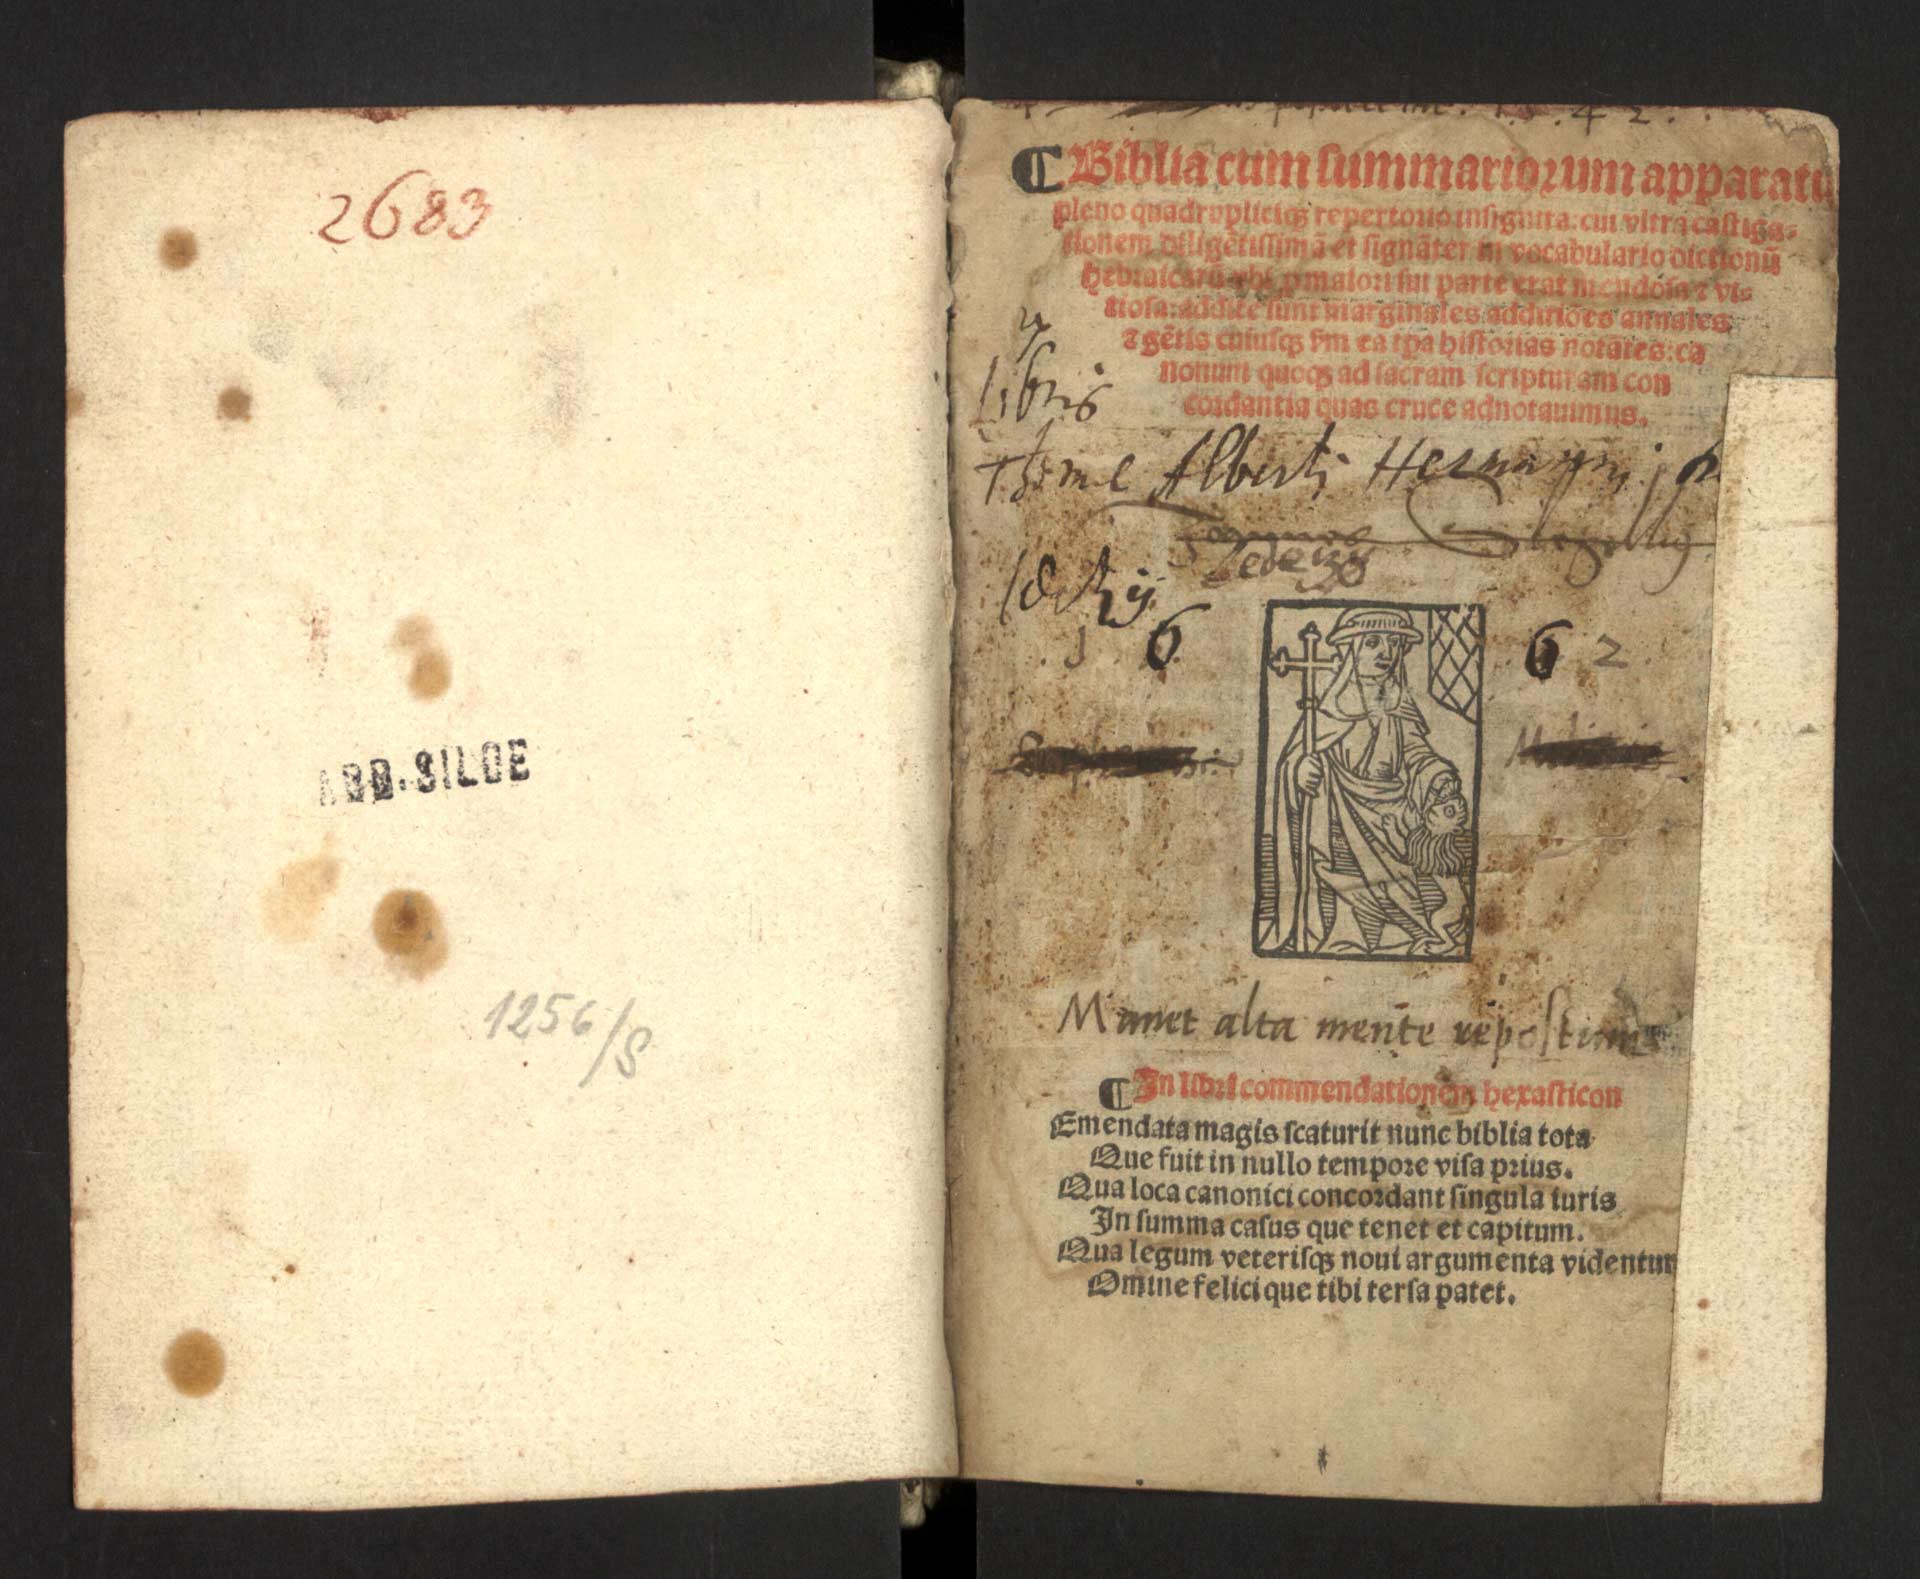 2683
ABB. SILOE
1256/S
1542.
¶ Biblia cum summariorum apparatu
pleno quadrupliciqꝫ repertorio insignita: cui vltra castiga-
tionem diligẽtissimã et signãter in vocabulario dictionũ
hebraicarũ vbi ꝓ maiori sui parte erat mendosa ⁊ vi-
tiosa: addite sunt marginales additiões annales
⁊ gẽtis cuiusqꝫ ẽm ea tꝑa historias notãtes: ca
nonum quoqꝫ ad sacram scripturam con
cordantia quas cruce adnotauimus.
Ex
libris
Thome Alberti
1 6 6 2
Manet alta mente repostum
¶ In libri commendationem hexasticon
Emendata magis scaturit nunc biblia tota
Que fuit in nullo tempore visa prius.
Qua loca canonici concordant singula iuris
In summa casus que tenet et capitum.
Qua legum veterisqꝫ noui argumenta videntur
Omine felici que tibi tersa patet.